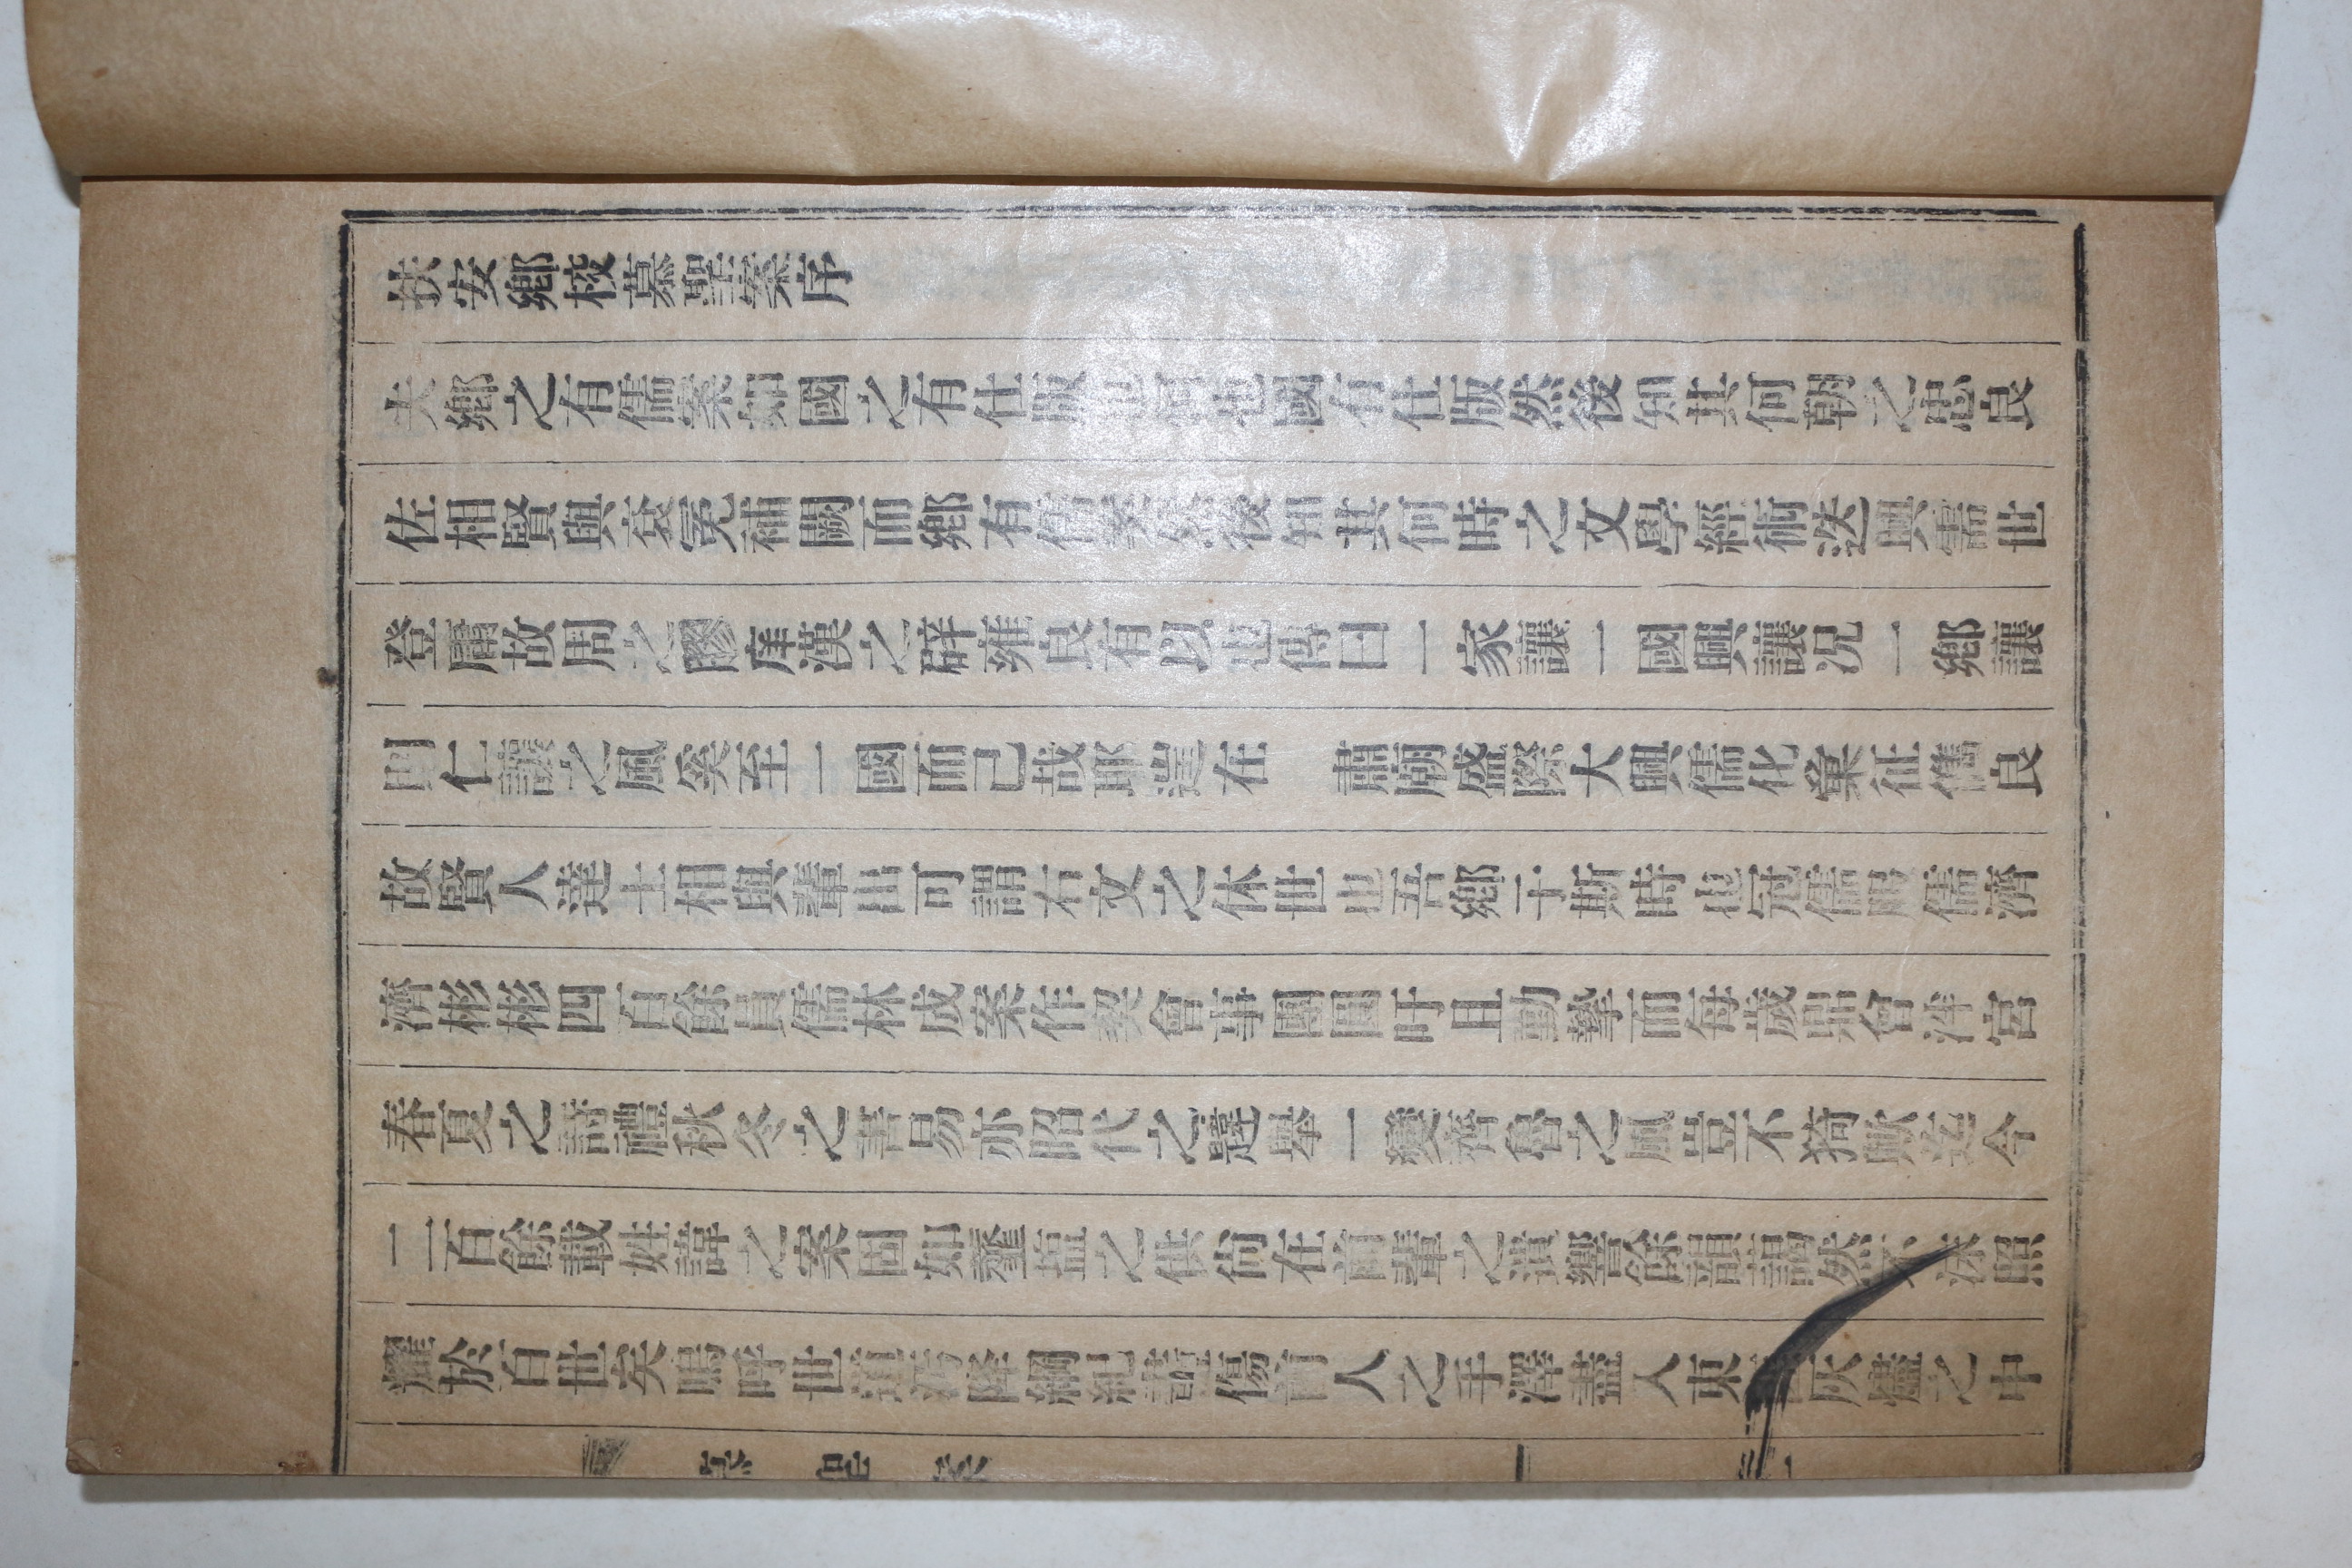 扶安鄕校慕聖案序
夫鄕之有儒案如國之有仕版也何也國有仕版然後知其何朝之忠良
佐相賢與袞冕補闕而鄕有儒案然後知其何時之文學經術迭興需世
登庸故周之膠庠漢之辟雍良有以也傳曰一家讓一國興讓况一鄕讓
則仁讓之風奚至一國而已哉耶遑在 肅廟盛際大興儒化彙征儁良
故賢人達士相與輩出可謂右文之休世也吾鄕于斯時也冠儒服儒濟
濟彬彬四百餘員儒林成案作契會事團圓吁且勤摯而每歲鼎會泮宮
春夏之詩禮秋冬之書易亦昭代之韙舉一變齊魯之風豈不猗歟迄今
二百餘載姓諱之案固如虀塩之供尙在前輩之遺響餘韻藹然不沫照
耀於百世矣嗚呼世道汚降綱紀蠹傷前人之手澤盡入東灰燼之中
慕聖案 一